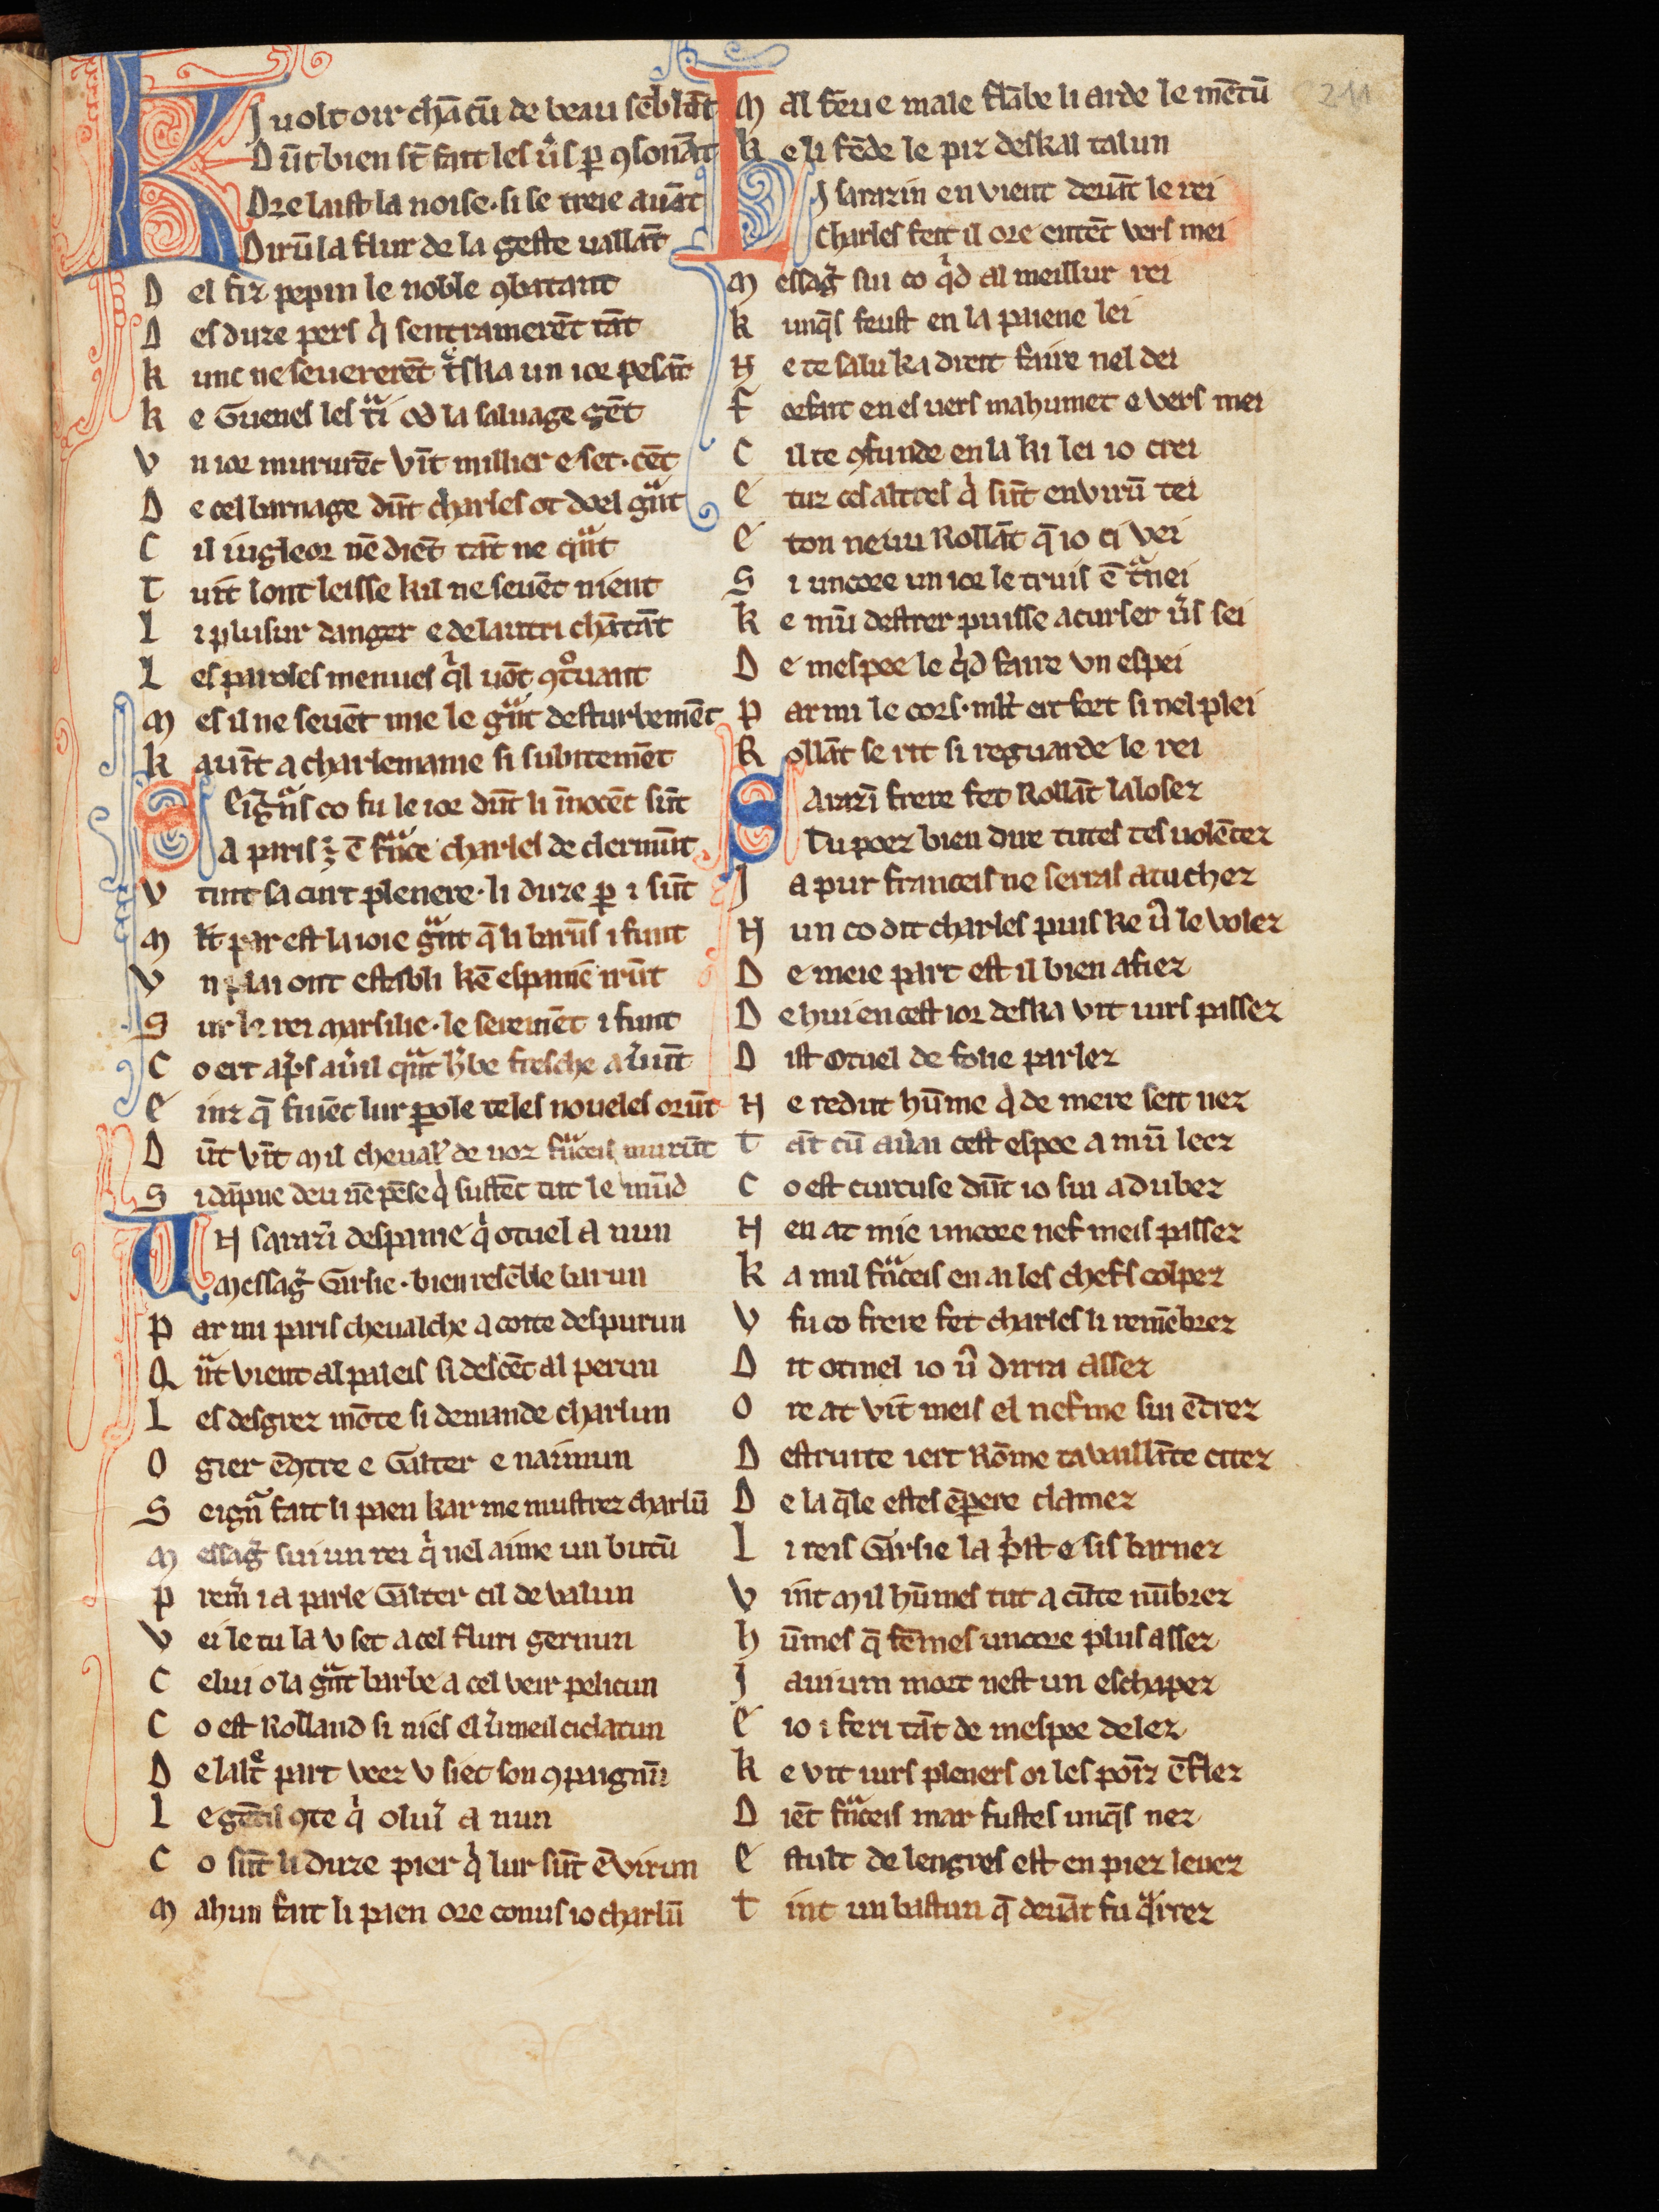 KJ uolt oir chācū de beau sēblāt
Dūt bien st̄ fait les ūs ꝑ ꝯsonāt
Ore laist la noise · si se treie auāt
Dirū la flur de la geste uallāt
Del fiz pepin le noble ꝯbatant
Des duze pers q̍ sentramerēt tāt
kunc ne seuererēt tͣska un ior pesāt
ke Guenes les tͣi od la saluage gēt
Vn ior mururēt vīt millier e set · cēt
De cel barnage dūt charles ot doel gͣnt
Cil iugleor nē diēt tāt ne qͣnt
Tuit lont leisse kil ne seuēt nient
Li plusur danger e de lautri chātāt
Les paroles menues q̍l uōt ꝯtͦuant
Mes il ne seuēt mie le gͣnt desturbemēt
kauīt a charlemaine si subitemēt
Seigͣn̄s co fu le ior dūt li īnocēt sūt
A paris ē fͣnce charles de clermūt
V tint sa curt plenere · li duze ꝑ i sūt
Mlt par est la ioie gͣnt q̄ li barūs i funt
Vn plai ont establi kē espanie irūt
Sur le rei Marsilie · le seremēt i funt
Co ert ap̍s auͥil qͣnt h̍be fresche auͥunt
Einz q̄ finēt lur ꝑole teles noueles orūt
Dūt vīt Mil cheual̍ de noz fͣnceis murūt
Si dāpne deu nē pēse q̍ sustēt tut le mūd
UN sarazī despanie q̍ otuel a nun
Messag̍ Garsie · bien resēble barun
Par mi paris cheualche a coite despurun
Qͣnt vient al paleis si descēt al perun
Les desgrez mōte si demande charlun
Ogier ēꝯtre e Galter e naimun
Seigͣn fait li paen kar me mustrez charlū
Messag̍ sui un rei q̍ nel aime un butū
Prem̍ i a parle Galter cil de valun
Vei le tu la v set a cel fluri gernun
Celui o la gͣnt barbe a cel veir pelicun
Co est Rolland si nies el v̍meil ciclatun
De laltͤ part veez v siet son ꝯpaignū
Le gētil ꝯte q̍ oliu̍ a nun
Co sūt li duze pier q̍ lur sūt ēvirun
Mahun fait li paen ore conus io charlū
Mal feu e male flābe li arde le mētū
ke li fēde le piz deskal talun
LI sarazin en vient deuāt le rei
Charles feit il ore entēt vers mei
Messag̍ sui co q̍d al meillur rei
kunq̄s feust en la paiene lei
Ne te salu ka dreit faire nel dei
Forfait en es uers mahumet e vers mei
Cil te ꝯfunde en la ki lei io crei
E tuz ces altres q̍ sūt envirū tei
E ton neuu Rollāt q̄ io ci vei
Si uncore un ior le truis ē tͣnei
ke mū destrer puisse acurser ūs sei
De mespee le q̍d faire vn espei
Par mi le cors · mlt ert fort si nel plei
Rollāt se rit si reguarde le rei
SArazī frere fet Rollāt lalosez
Tu poez bien dire tutes tes uolētez
Ja pur franceis ne serras atuchez
Nun co dit charles puis ke ū le volez
De meie part est il bien afiez
De hui en cest ior deska vit iurs passez
Dist Otuel de folie parlez
Ne redut hūme q̍ de mere seit nez
Tāt cū au̍ai cest espee a mū leez
Co est curcuse dūt io sui adubez
Nen at mie uncore nef meis passez
ka mil fͣnceis en ai les chefs colpez
V fu co frere fet charles li remēbrez
Dit otinel io ū dirai assez
Ore at vīt meis el nefme sui ētrez
Destruite iert Rōme ta vaillāte citez
De la q̄le estes ēꝑere clamez
Li reis Garsie la p̍st e sis barnez
Vint Mil hūmes tut a cūte nūbrez
hūmes q̄ fēmes uncore plus assez
J aui um mort nest un eschapez
E io i feri tāt de mespee delez
ke vit iurs pleners oi les poīz ēflez
Diēt fͣnceis mar fustes unq̄s nez
Estult de lengres est en piez leuez
Tint un bastun q̄ deuāt fu qͣrrez